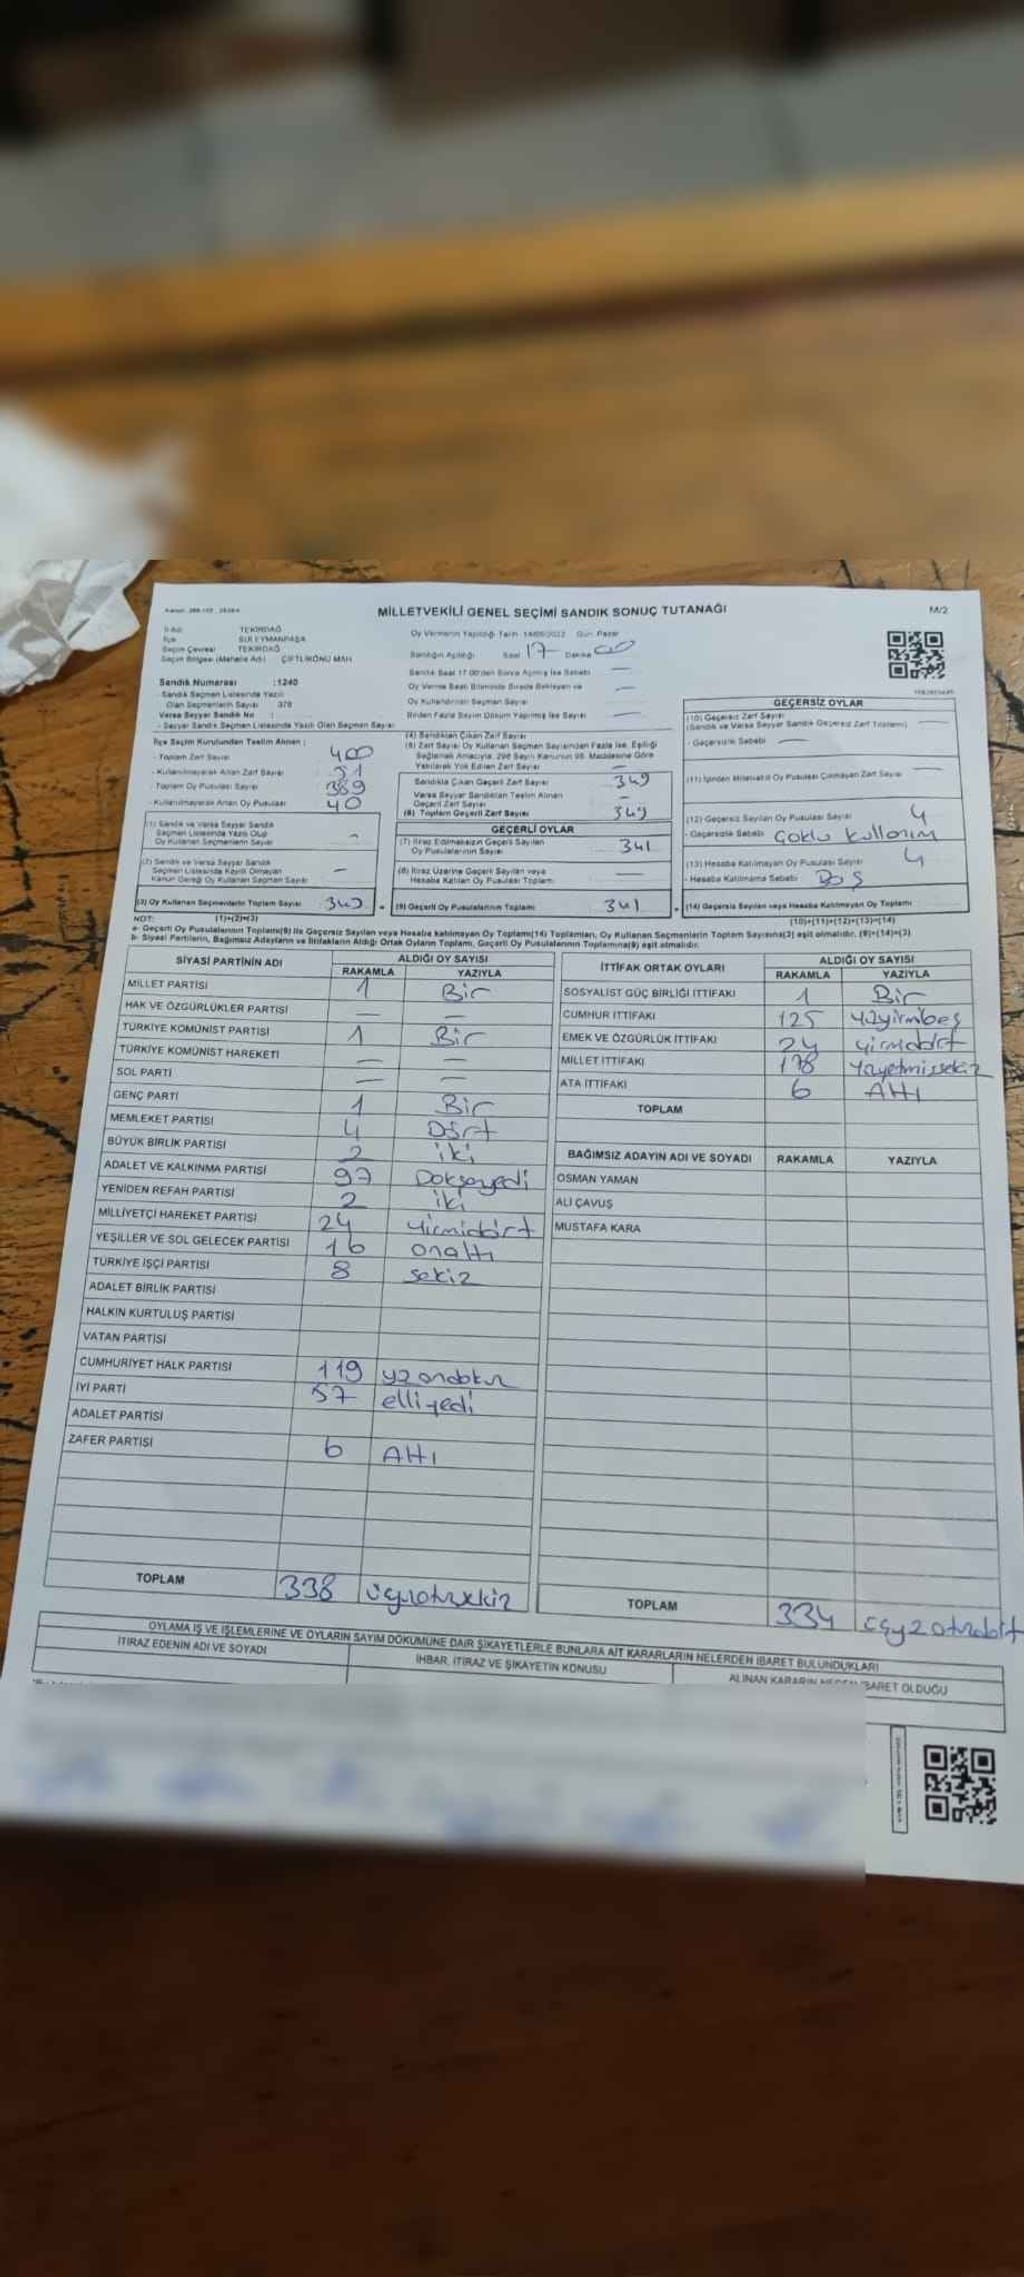 MİLLETVEKİLİ GENEL SEÇİMİ SANDIK SONUÇ TUTANAĞI
M/2
İl Adı : TEKİRDAĞ
İlçe : SÜLEYMANPAŞA
Seçim Çevresi : TEKİRDAĞ
Seçim Bölgesi (Mahalle Adı) : ÇİFTLİKÖNÜ MAH.
Sandık Numarası : 1240
Sandık Seçmen Listesinde Yazılı
Olan Seçmenlerin Sayısı 378
Varsa Seyyar Sandık No :
- Seyyar Sandık Seçmen Listesinde Yazılı Olan Seçmen Sayısı
Oy Vermenin Yapıldığı Tarih Gün: Pazar
Sandığın Açılışı Saat 17 Dakika 00
Sandık Saat 17.00'den Sonra Açılmış İse Sebebi —
Oy Verme Saati Bitiminde Sırada Bekleyen ve —
Oy Kullandırılan Seçmen Sayısı
Birden Fazla Sayım Döküm Yapılmış İse Sayısı —
İlçe Seçim Kurulundan Teslim Alınan :
- Toplam Zarf Sayısı 400
- Kullanılmayarak Artan Zarf Sayısı 51
- Toplam Oy Pusulası Sayısı 389
- Kullanılmayarak Artan Oy Pusulası 40
(1) Sandık ve Varsa Seyyar Sandık
Seçmen Listesinde Yazılı Olup
Oy Kullanan Seçmenlerin Sayısı
(2) Sandık ve Varsa Seyyar Sandık
Seçmen Listesinde Kayıtlı Olmayan
Kanun Gereği Oy Kullanan Seçmen Sayısı —
(3) Oy Kullanan Seçmenlerin Toplam Sayısı
(1)+(2)=(3)
(4) Sandıktan Çıkan Zarf Sayısı
(5) Zarf Sayısı Oy Kullanan Seçmen Sayısından Fazla İse, Eşitliği
Sağlamak Amacıyla, 298 Sayılı Kanunun 98. Maddesine Göre
Yakılarak Yok Edilen Zarf Sayısı
Sandıkta Çıkan Geçerli Zarf Sayısı 349
Varsa Seyyar Sandıktan Teslim Alınan
Geçerli Zarf Sayısı —
(6) Toplam Geçerli Zarf Sayısı 349
GEÇERLİ OYLAR
(7) İtiraz Edilmeksizin Geçerli Sayılan
Oy Pusulalarının Sayısı 341
(8) İtiraz Üzerine Geçerli Sayılan veya
Hesaba Katılan Oy Pusulası Toplamı —
(9) Geçerli Oy Pusulalarının Toplamı 341
GEÇERSİZ OYLAR
(10) Geçersiz Zarf Sayısı
(Sandık ve Varsa Seyyar Sandık Geçersiz Zarf Toplamı) —
- Geçersizlik Sebebi —
(11) İçinden Milletvekili Oy Pusulası Çıkmayan Zarf Sayısı —
(12) Geçersiz Sayılan Oy Pusulası Sayısı 4
- Geçersizlik Sebebi Çoklu kullanım
(13) Hesaba Katılmayan Oy Pusulası Sayısı 4
- Hesaba Katılmama Sebebi Boş
(14) Geçersiz Sayılan veya Hesaba Katılmayan Oy Toplamı
(10)+(11)+(12)+(13)=(14)
NOT:
a- Geçerli Oy Pusulalarının Toplamı(9) ile Geçersiz Sayılan veya Hesaba katılmayan Oy Toplamı(14) Toplamları, Oy Kullanan Seçmenlerin Toplam Sayısına(3) eşit olmalıdır. (9)+(14)=(3)
b- Siyasi Partilerin, Bağımsız Adayların ve İttifakların Aldığı Ortak Oyların Toplamı, Geçerli Oy Pusulalarının Toplamına(9) eşit olmalıdır.
SİYASİ PARTİNİN ADI ALDIĞI OY SAYISI
RAKAMLA YAZIYLA
MİLLET PARTİSİ 1 Bir
HAK VE ÖZGÜRLÜKLER PARTİSİ — —
TÜRKİYE KOMÜNİST PARTİSİ 1 Bir
TÜRKİYE KOMÜNİST HAREKETİ — —
SOL PARTİ — —
GENÇ PARTİ 1 Bir
MEMLEKET PARTİSİ 4 Dört
BÜYÜK BİRLİK PARTİSİ 2 iki
ADALET VE KALKINMA PARTİSİ 97 Doksayedi
YENİDEN REFAH PARTİSİ 2 iki
MİLLİYETÇİ HAREKET PARTİSİ 24 yirmidört
YEŞİLLER VE SOL GELECEK PARTİSİ 16 onaltı
TÜRKİYE İŞÇİ PARTİSİ 8 sekiz
ADALET BİRLİK PARTİSİ
HALKIN KURTULUŞ PARTİSİ
VATAN PARTİSİ
CUMHURİYET HALK PARTİSİ 119 yzondokuz
İYİ PARTİ 57 elliyedi
ADALET PARTİSİ
ZAFER PARTİSİ 6 Altı
TOPLAM 338
İTTİFAK ORTAK OYLARI ALDIĞI OY SAYISI
RAKAMLA YAZIYLA
SOSYALİST GÜÇ BİRLİĞİ İTTİFAKI 1 Bir
CUMHUR İTTİFAKI 125 yüzyirmbeş
EMEK VE ÖZGÜRLÜK İTTİFAKI 24 yirmidört
MİLLET İTTİFAKI 178 yzyetmişsekiz
ATA İTTİFAKI 6 Altı
TOPLAM
BAĞIMSIZ ADAYIN ADI VE SOYADI RAKAMLA YAZIYLA
OSMAN YAMAN
ALİ ÇAVUŞ
MUSTAFA KARA
TOPLAM 334
OYLAMA İŞ VE İŞLEMLERİNE VE OYLARIN SAYIM DÖKÜMÜNE DAİR ŞİKAYETLERLE BUNLARA AİT KARARLARIN NELERDEN İBARET BULUNDUKLARI
İTİRAZ EDENİN ADI VE SOYADI
İHBAR, İTİRAZ VE ŞİKAYETİN KONUSU
ALINAN KARARIN NEDEN İBARET OLDUĞU